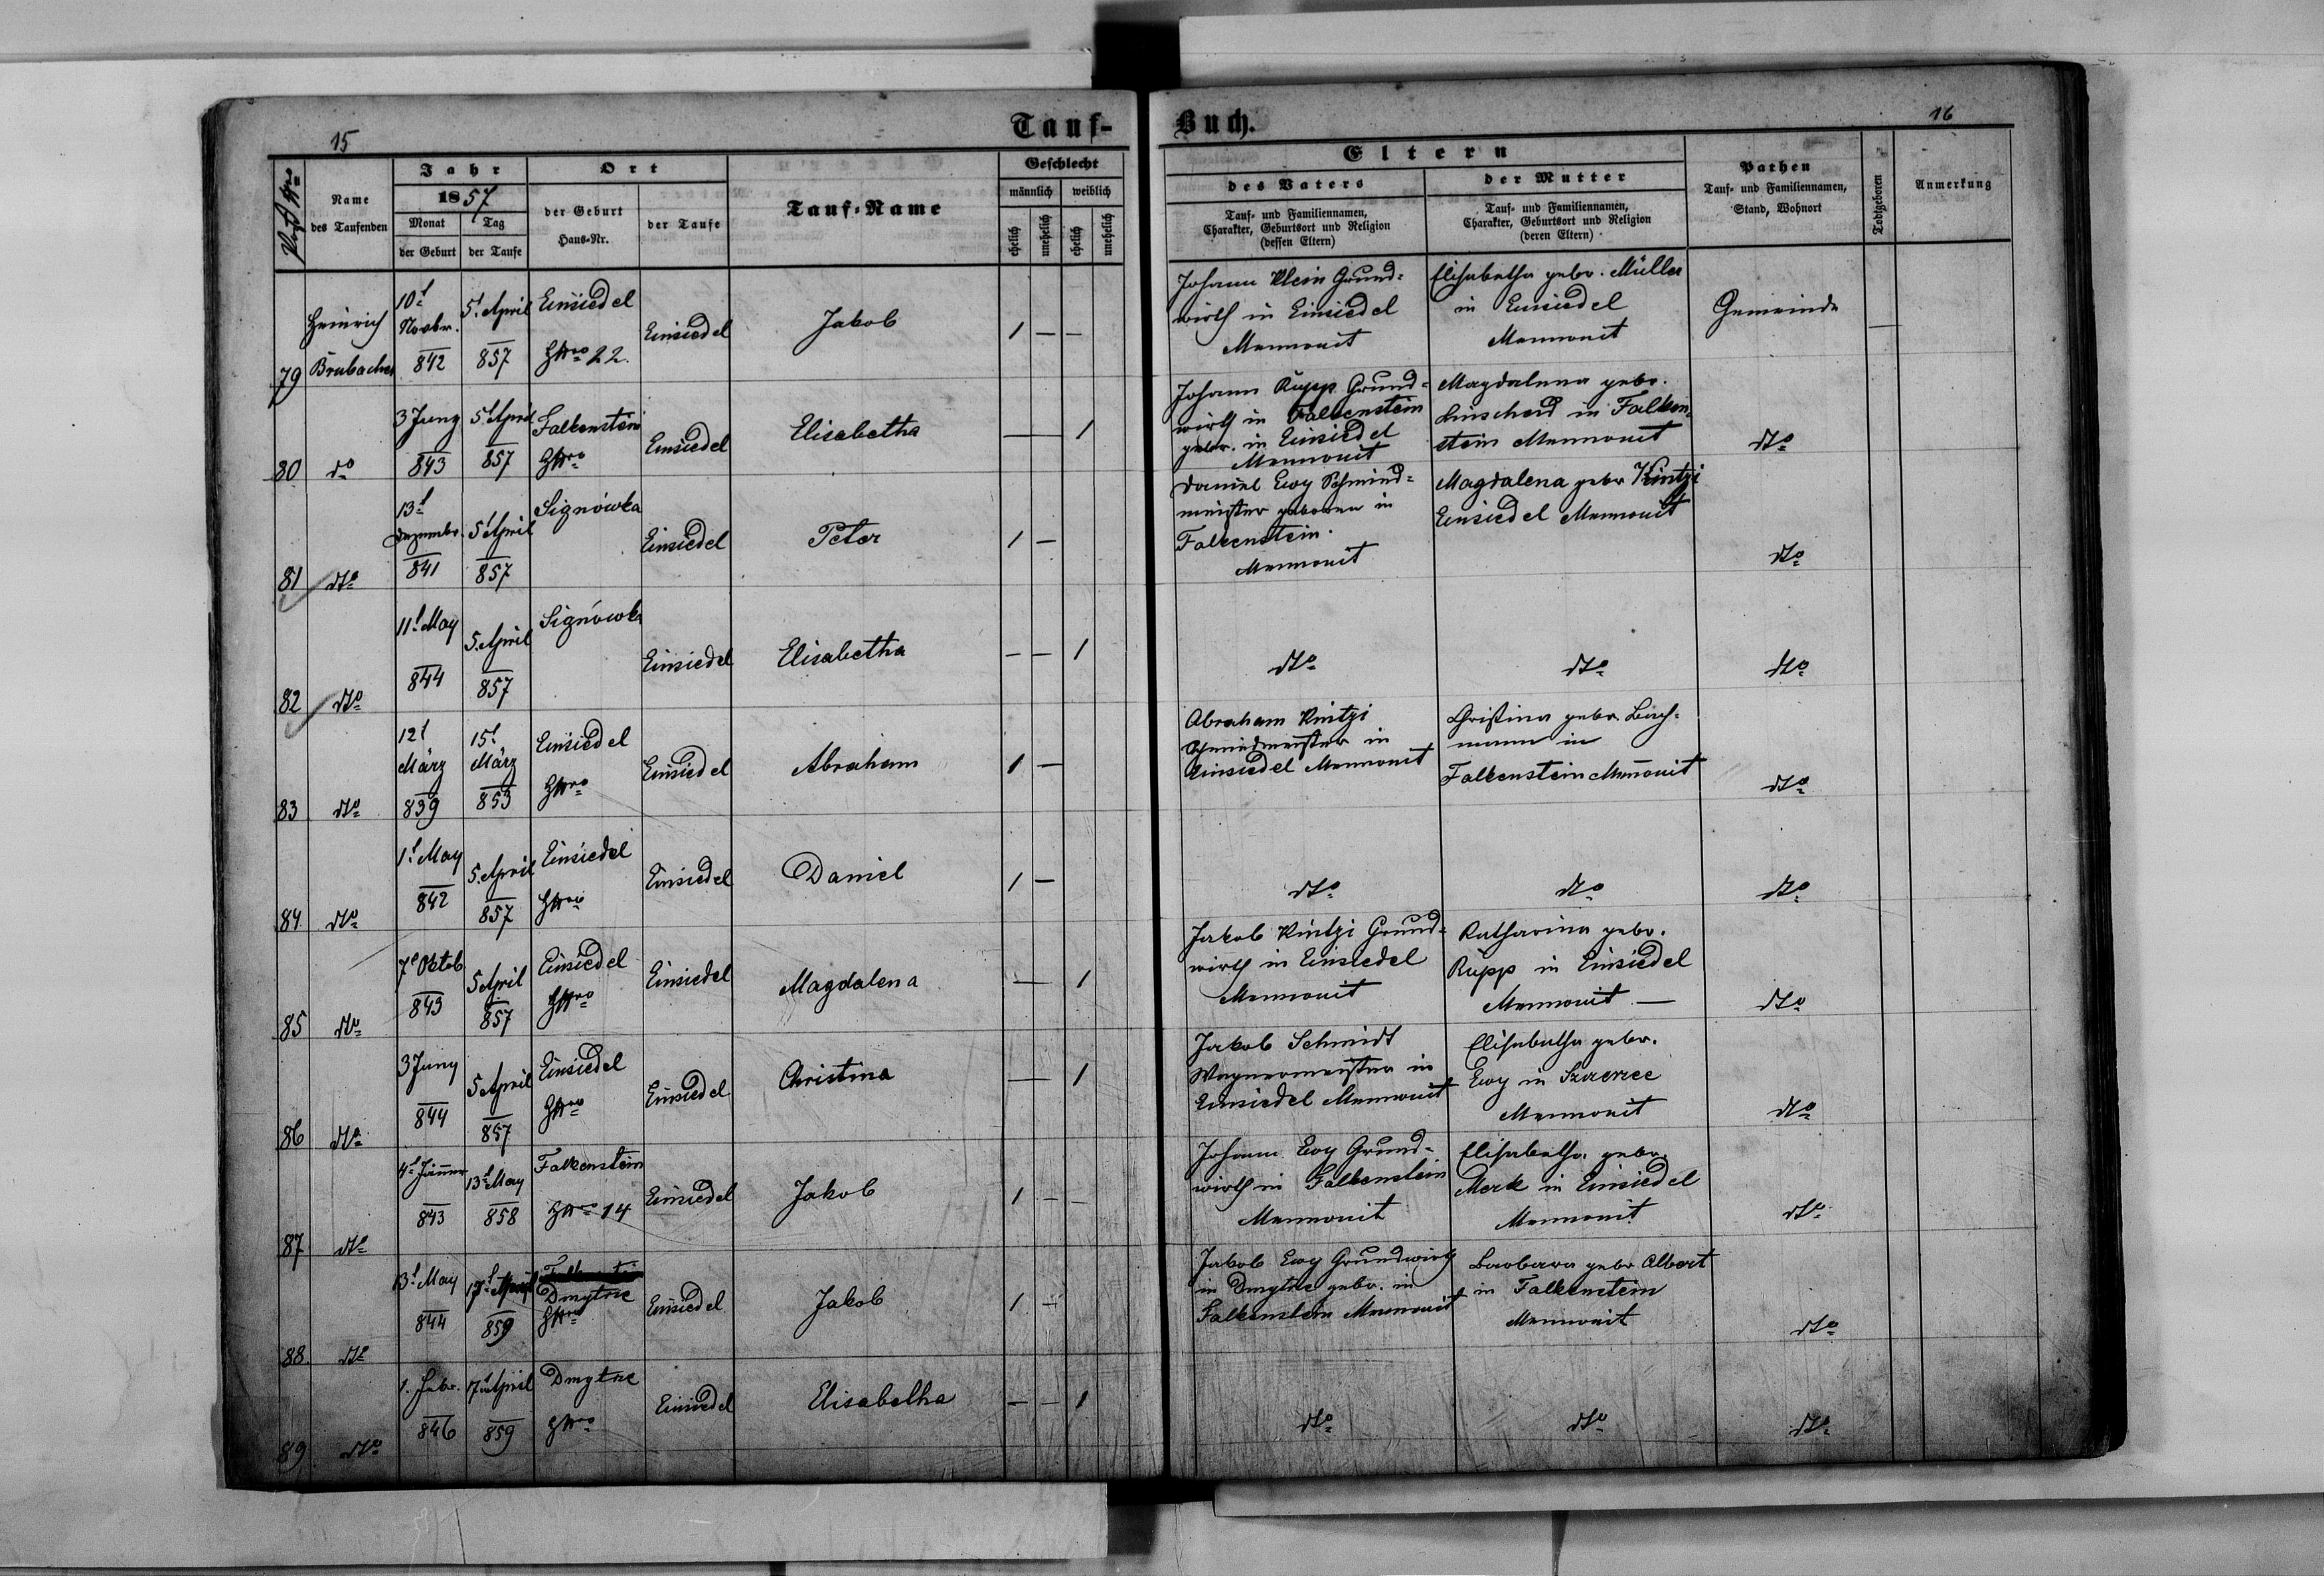 15
Tauf-
Buch.
16
Post Nro
Name
des Taufenden
Jahr
1857
Monat
Tag
der Geburt
der Taufe
Ort
der Geburt
Haus-Nr.
der Taufe
Tauf-Name
Geschlecht
männlich
weiblich
ehelich
unehelich
ehelich
unehelich
Eltern
des Vaters
Tauf- und Familiennamen,
Charakter, Geburtsort und Religion
(dessen Eltern)
der Mutter
Tauf- und Familiennamen,
Charakter, Geburtsort und Religion
(deren Eltern)
Pathen
Tauf- und Familiennamen,
Stand, Wohnort
Todtgeboren
Anmerkung
79
Heinrich
Brubacher
10t
Novbr.
842
5t April
857
Einsiedel
HNro 22.
Einsiedel
Jakob
1 — —
Johann Klein Grund-
wirth in Einsiedel
Mennonit
Elisabetha gebr. Müller
in Einsiedel
Mennonit
Gemeinde
—
80
do
3 Juny
843
5t April
857
Falkenstein
HNro
Einsiedel
Elisabetha
— 1
Johann Rupp Grund-
wirth in Falkenstein
gebr. in Einsiedel
Mennonit
Magdalena gebr.
Linscheid in Falken-
stein Mennonit
dto
81
dto
13t
Dezembr.
841
5t April
857
Signówka
Einsiedel
Peter
1 —
Daniel Ewy Schmied-
meister geboren in
Falkenstein.
Mennonit
Magdalena gebr Kintzi
Einsiedel Mennonit
dto
82
dto
11t May
844
5. April
857
Signówka
Einsiedel
Elisabetha
— — 1
dto
dto
dto
83
dto
12t
März
839
15t
März
853
Einsiedel
HNro
Einsiedel
Abraham
1 —
Abraham Kintzi
Schmiedmeister in
Einsiedel Mennonit
Christina gebr. Bach-
mann in
Falkenstein Menonit
dto
84
dto
1t May
842
5. April
857
Einsiedel
HNro
Einsiedel
Daniel
1 —
dto
dto
dto
85
dto
7t Oktob
843
5 April
857
Einsiedel
HNro
Einsiedel
Magdalena
— 1
Jakob Kintzi Grund-
wirth in Einsiedel
Mennonit
Katharina gebr.
Rupp in Einsiedel
Mennonit —
dto
86
dto
3 Juny
844
5 April
857
Einsiedel
HNro
Einsiedel
Christina
— 1
Jakob Schmidt
Wagnermeister in
Einsiedel Mennonit
Elisabetha gebr.
Ewy in Szczerzec
Mennonit
dto
87
dto
4t Jänner
843
13t May
858
Falkenstein
HNro 14
Einsiedel
Jakob
1 —
Johann Ewy Grund-
wirth in Falkenstein
Mennonit
Elisabetha gebr.
Merk in Einsiedel
Mennonit
dto
88.
dto
13t May
844
17t April
859
Dmytrie
HNro
Einsiedel
Jakob
1 —
Jakob Ewy Grundwirth
in Dmytrie gebr. in
Falkenstein Mennonit
Barbara gebr Albert
in Falkenstein
Mennonit
dto
89
dto
1. Febr.
846
17t April
859
Dmytrie
HNro
Einsiedel
Elisabetha
— — 1
dto
dto
dto